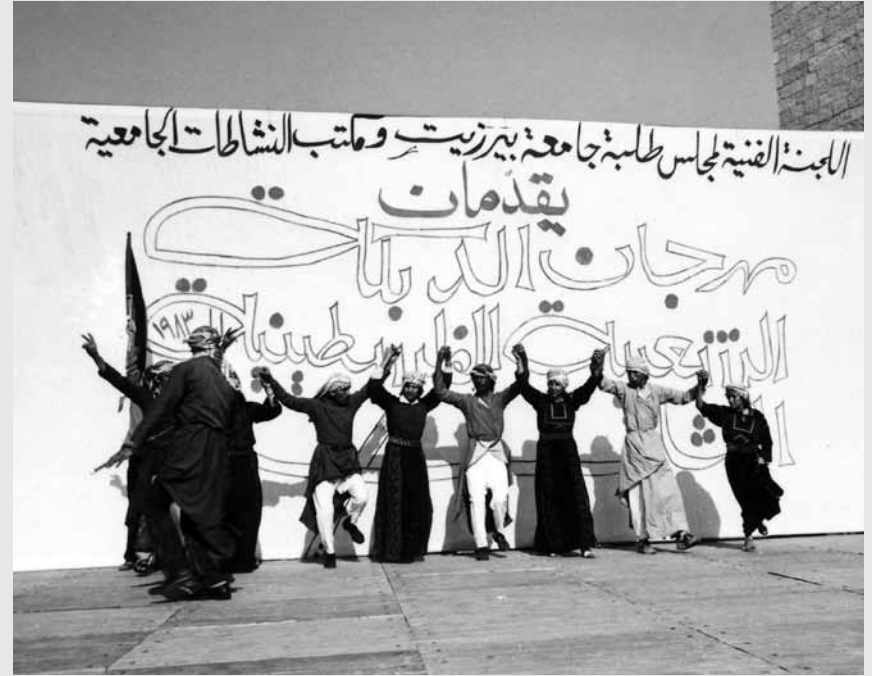 اللجنة الفنية لمجلس طلبة جامعة بيرزيت ومكتب النشاطات الجامعية
يقدّمان
مهرجان الدبكات
الشعبية الفلسطينية
١٩٨٣